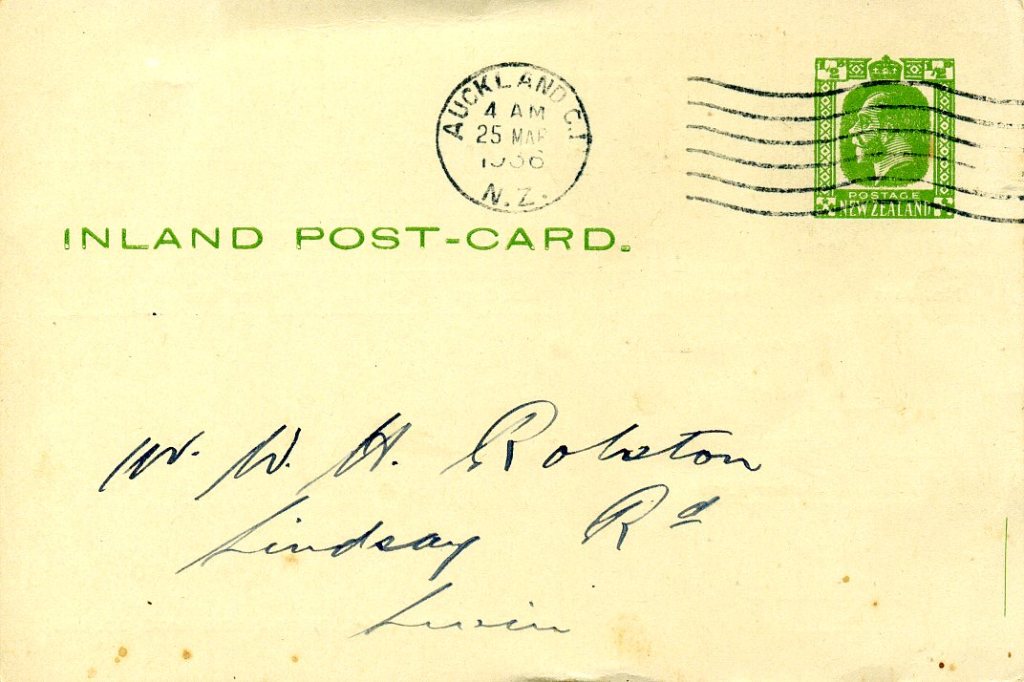 ½D ½D
AUCKLAND C.1
4 AM
25 MAR
1936
N.Z.
POSTAGE
NEW ZEALAND
INLAND POST-CARD.
Mr. W. H. Rolston
Lindsay Rd
Levin